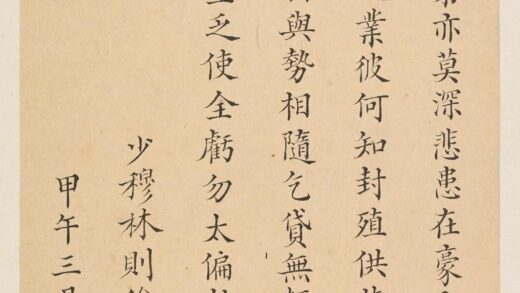 亦莫深悲患在豪
業彼何知封殖供
與勢相隨乞貸無
乏使全虧勿太偏
少穆林則徐
甲午三月